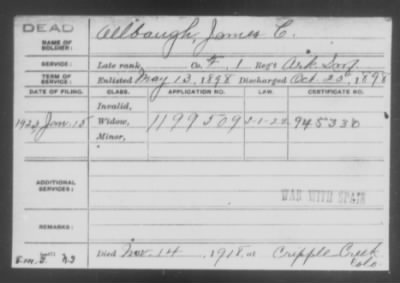 DEAD
NAME OF SOLDIER: Allbaugh, James C.
SERVICE: Late rank, Co. F, 1 Reg't Ark Inf
TERM OF SERVICE: Enlisted May 13, 1898 Discharged Oct. 25, 1898
DATE OF FILING. CLASS. APPLICATION NO. LAW. CERTIFICATE NO.
Invalid,
1923, Jan. 15 Widow, 1199509 945330
Minor,
ADDITIONAL SERVICES:
WAR WITH SPAIN
REMARKS:
Died Nov. 14, 1918, at Cripple Creek
Colo.